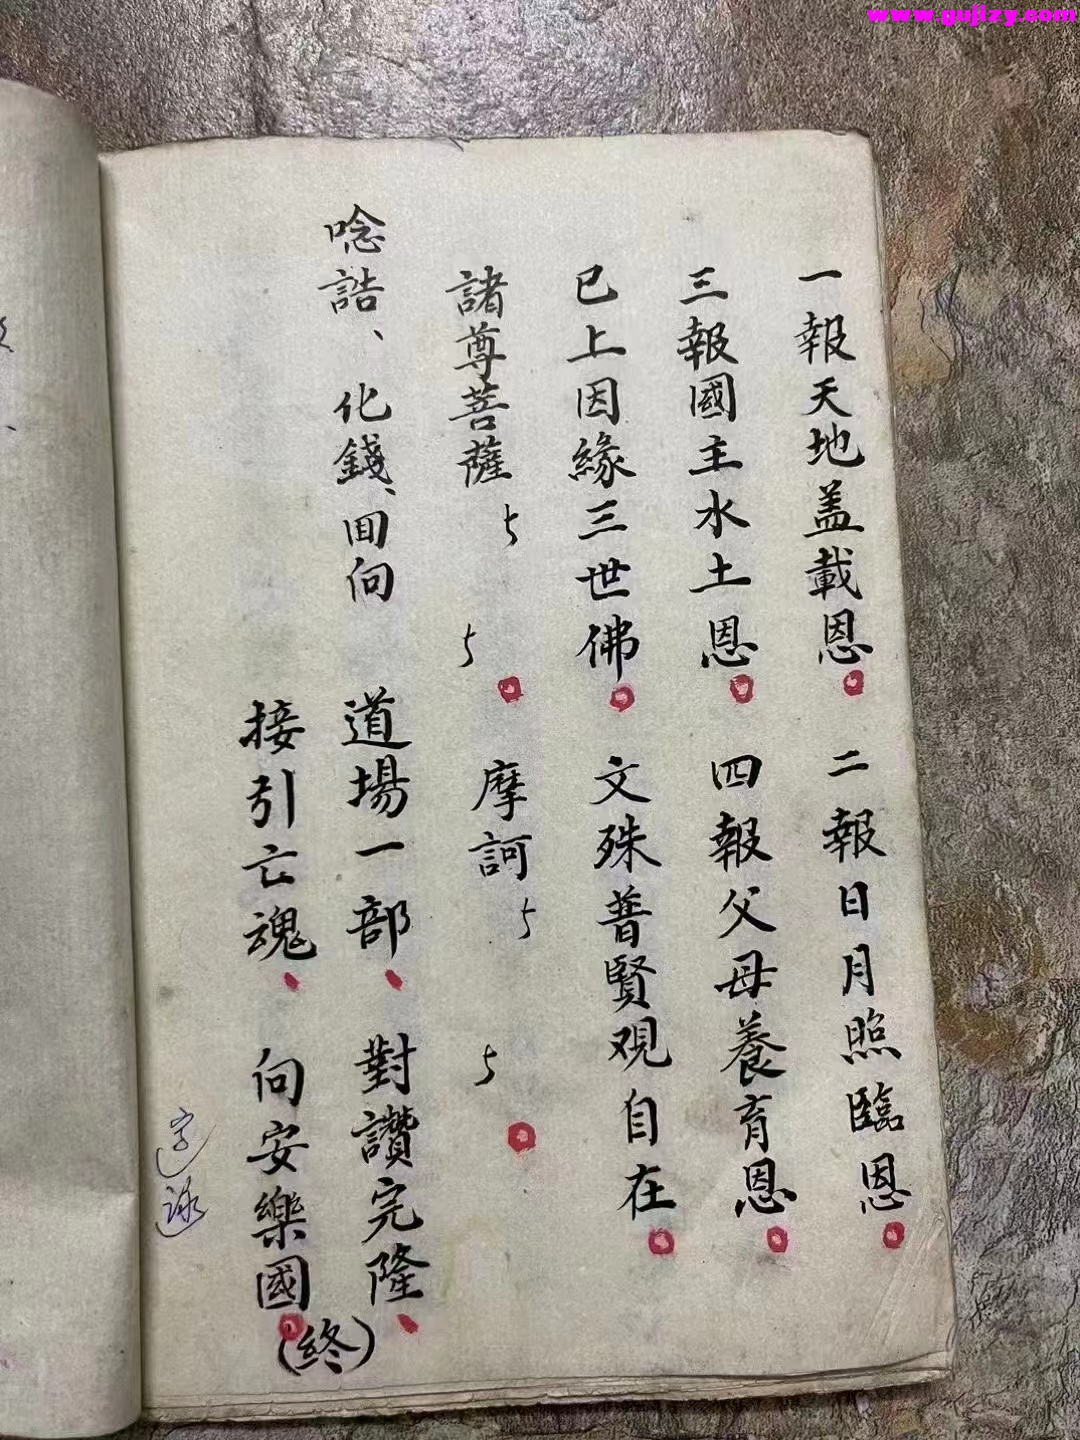 www.gujizy.com
一報天地盖載恩 二報日月照臨恩
三報國主水土恩 四報父母養育恩
已上因緣三世佛 文殊普賢观自在
諸尊菩薩 摩訶
唸誥、化錢、回向 道場一部、對讚完隆、
接引亡魂、向安樂國
(終)